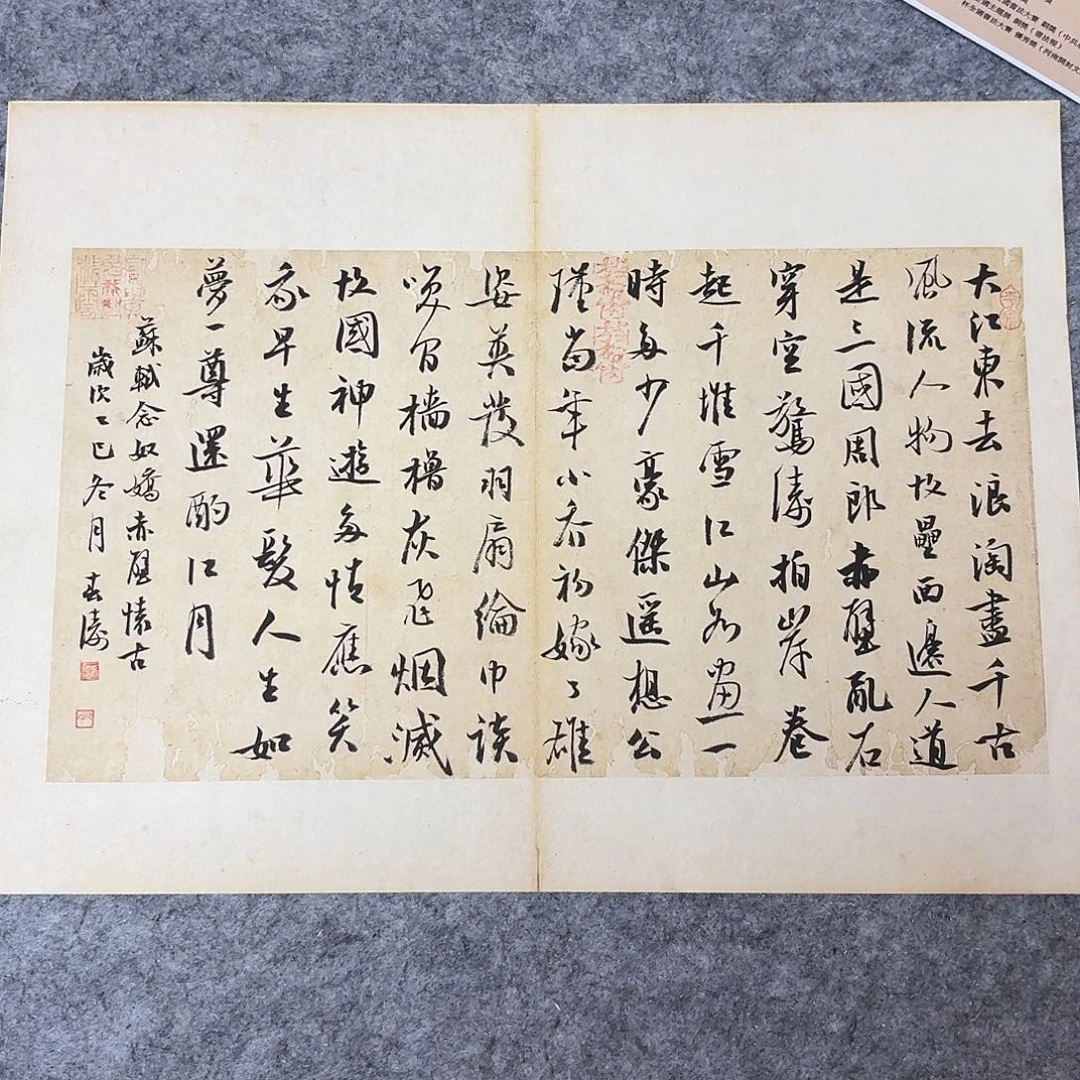 大江東去浪淘盡千古
風流人物故壘西邊人道
是三國周郎赤壁亂石
穿空驚濤拍岸卷
起千堆雪江山如畫一
時多少豪傑遥想公
瑾當年小喬初嫁了雄
姿英發羽扇綸巾談
笑間檣櫓灰飛烟滅
故國神遊多情應笑
我早生華髮人生如
夢一尊還酹江月
蘇軾念奴嬌赤壁懷古
歲次乙巳冬月 春濤
國書法大賽 銅獎（中共
（書法報）
杯全國書法大賽 優秀獎（河南開封文